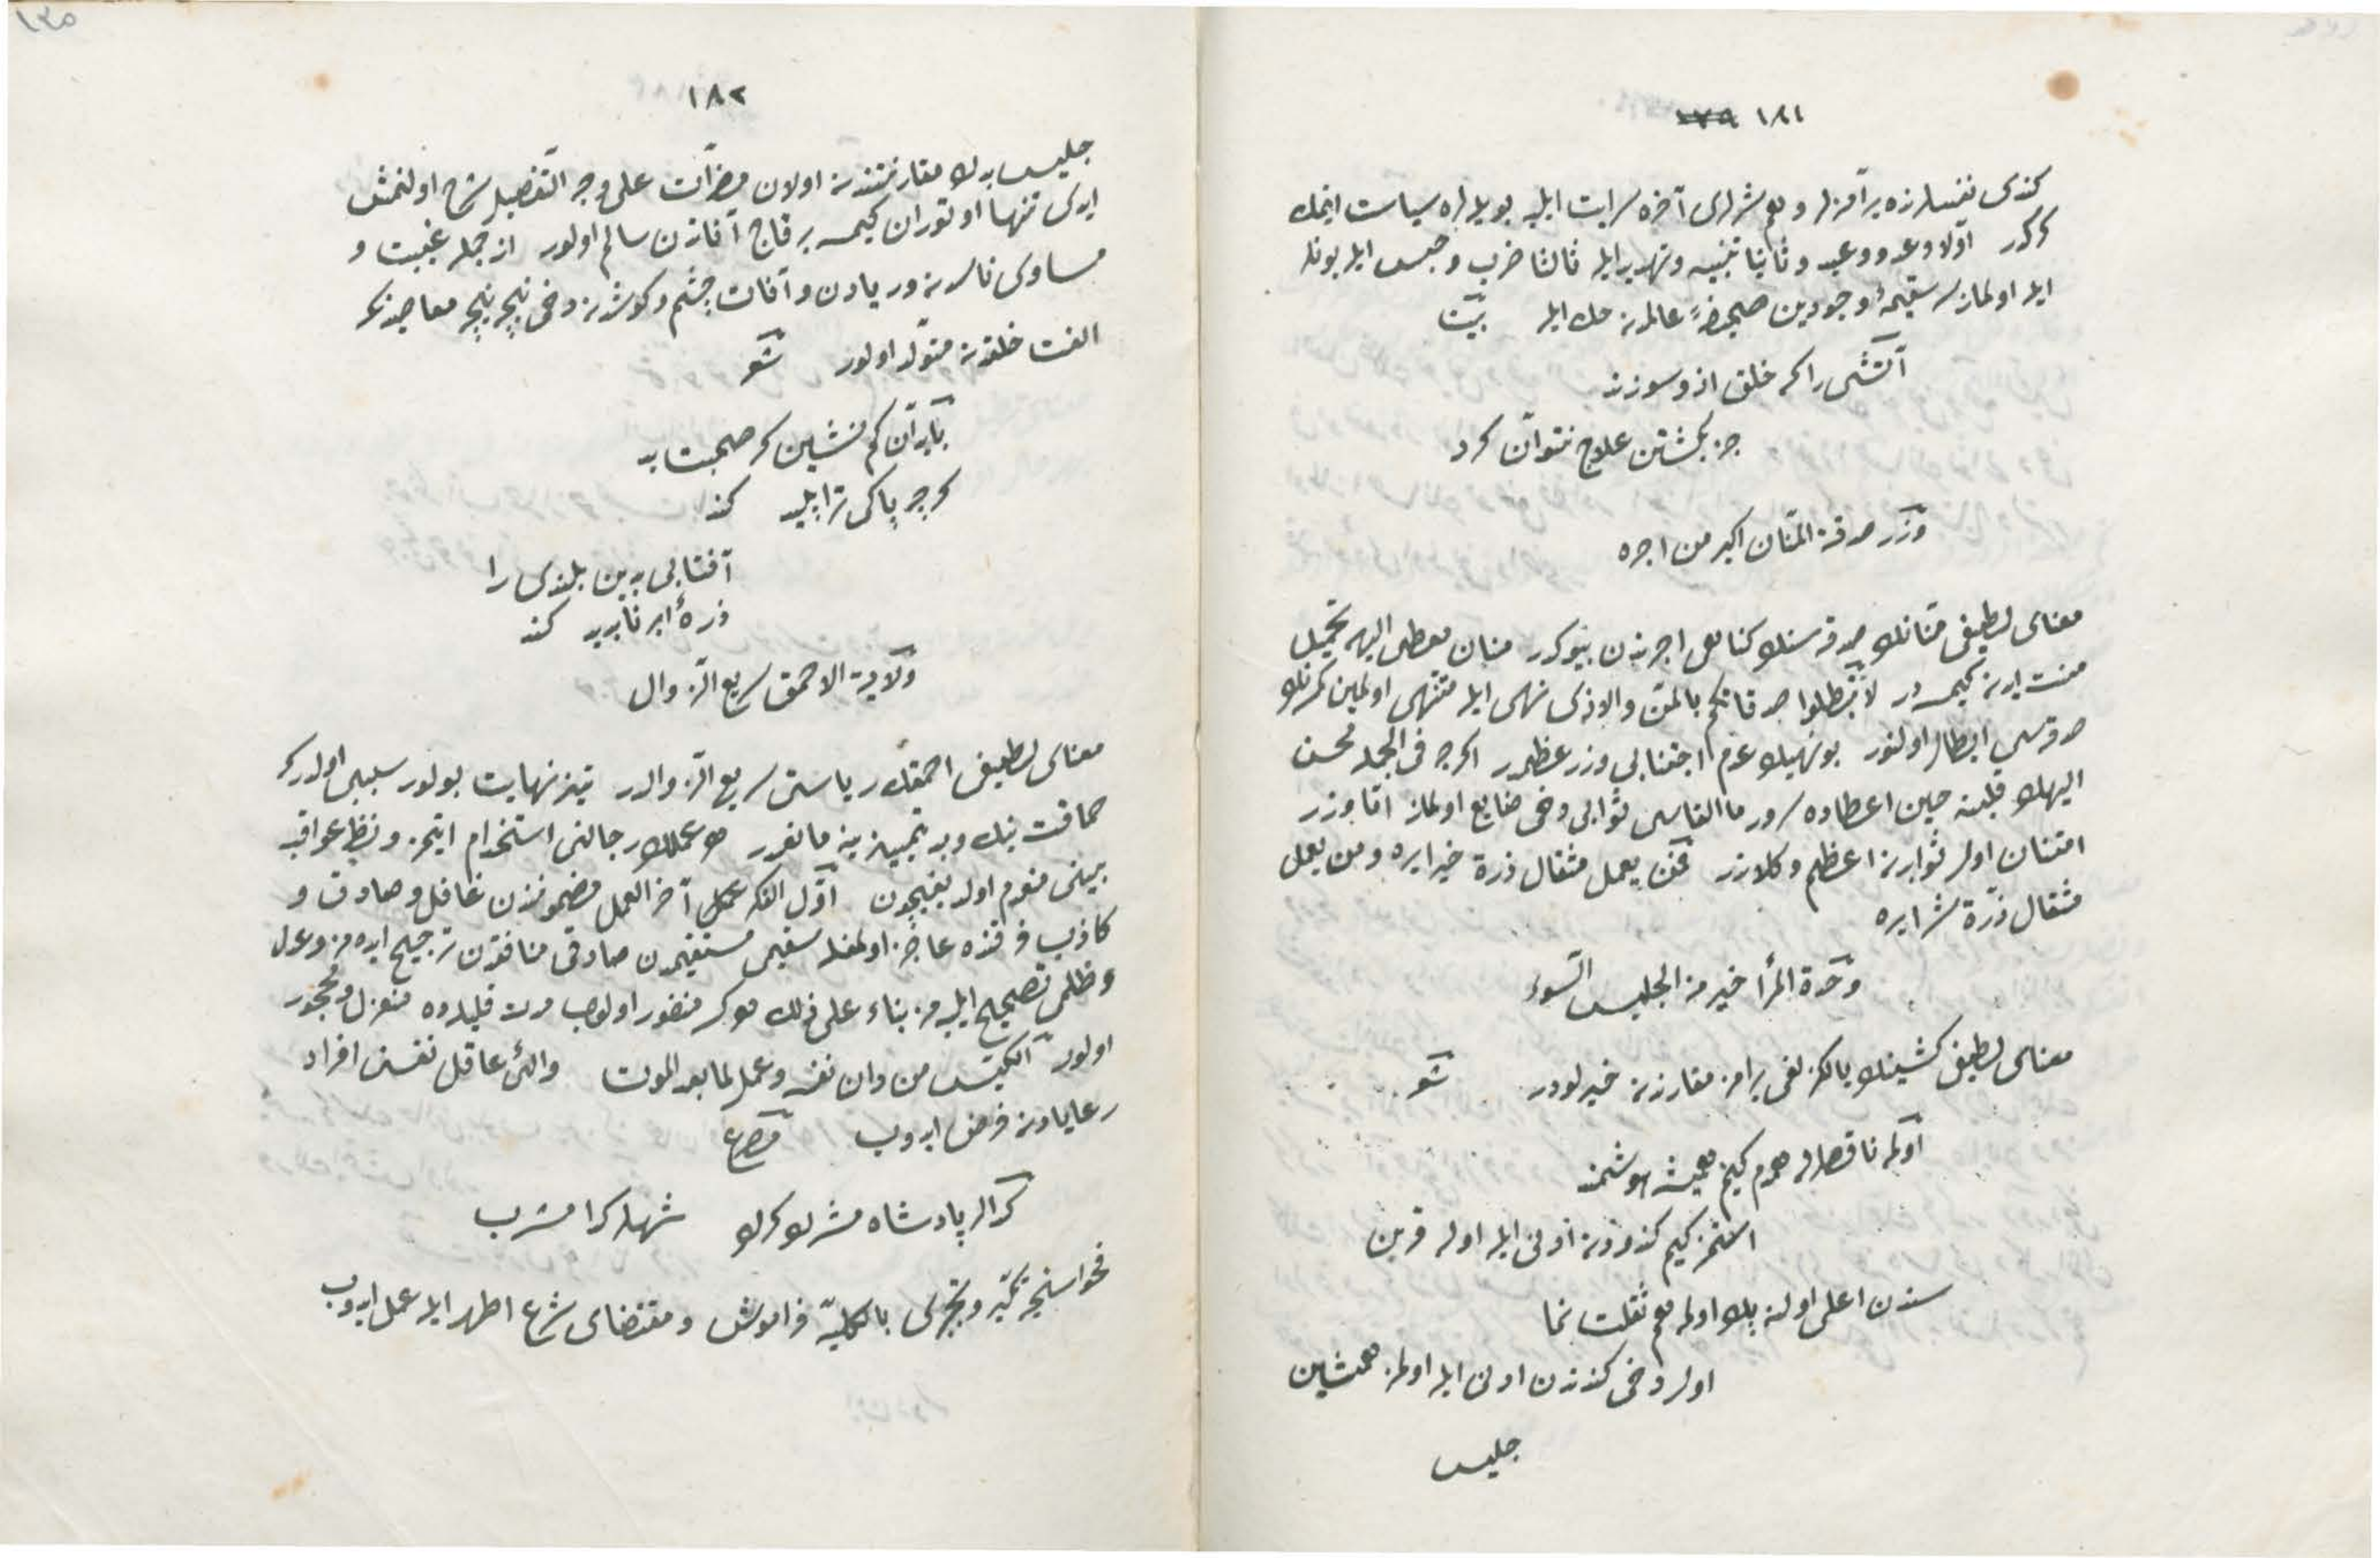 ١٨١ ١٧٩
كندی نفسلرنده برآمزلر و هم شرلری آخره سرایت ایلر بویله لره سیاست ایتمك
كركدر اولا وعد و وعید و ثانیا تنبیه و تهدید ایله ثالثا ضرب و حبس ایله بونلر
ایله اولمازسه سقیمهٔ وجودین صحیفهٔ عالمدن حك ایله بیت
آتشی را كه خلق ازو سوزند
جز بكشتن علاج نتوان كرد
وزر صدقة المنّان اكبر من اجره
معنای لطیفی منّانك صدقه سنك كناهی اجرندن بیوكدر منان معطی الیهه تحمیل
منت ایدن كیمسه در لا تبطلوا صدقاتكم بالمنّ والاذی نهی ایله منتهی اولمیان كمسه نك
صدقه سی ابطال اولنور بو نهیك عدم اجتنابی وزر عظیمدر اكرچه فی الجمله محسن
الیهك قلبنه حین اعطاده سرور ما القاسی ثوابی دخی ضایع اولماز امّا وزر
امتنان اولر ثوابدن اعظم و كلاندر فمن یعمل مثقال ذرة خیرا یره و من یعمل
مثقال ذرّة شرا یره
وحدة المرأ خیر من الجلیس السّوء
معنای لطیفی كشینك یالكزلغی یرامز مقارندن خیرلودر شعر
اولمه ناقصلرله همدم كیم همیشه هوشمند
استمز كیم كندودن ادنی ایله اوله قرین
سندن اعلی اولنه یلك اوله هم ثقلت نما
اولر دخی كندندن ادنی ایله اولمز همنشین
جلیس
١٨٢
جلیس بدك مقارنتندن اولان مضرّات علی وجه التّفصیل شرح اولنمش
ایدی تنها اوتوران كیمسه بر قاچ آفاتدن سالم اولور از جمله غیبت و
مساوی ناسدن و ریادن و آفات چشم و كوشدن دخی نیجه نیجه معاصیدن كه
الفت خلقدن متولّد اولور شعر
با بدان كم نشین كه صحبت بد
كرچه پاكی ترا پلید كند
آفتابی بدین بلندی را
ذرهٔ ابر ناپدید كند
ولایة الاحمق سریع الزّوال
معنای لطیفی احمقك ریاستی سریع الزّوالدر تیز نهایت بولور سببی اولدركه
حماقت نیك و بد تمییزینه مانعدر هر عملك رجالنی استخدام ایتمز و نظر عواقب
بینی منعدم اولدیغیچون اوّل الفكر آخر العمل مضمونندن غافل و صادق و
كاذب فرقنده عاجز اولمغله سقیمی مستقیمدن صادقی منافقدن ترجیح ایده مز و عدل
و ظلمی تصحیح ایلیه مز بناء علی ذلك هركز منصور اولیوب مدت قلیلده منعزل و محجور
اولور الكیّس من دان نفسه و عمل لما بعد الموت والئ عاقل نفسنی افراد
رعایادن فرض ایدوب مصرع
كدالر پادشاه مشرب كرك شهلر كدا مشرب
فحواسنجه تكبّر و تجبّری بالكلیّه فراموش و مقتضای شرع اطهر ایله عمل ایدوب